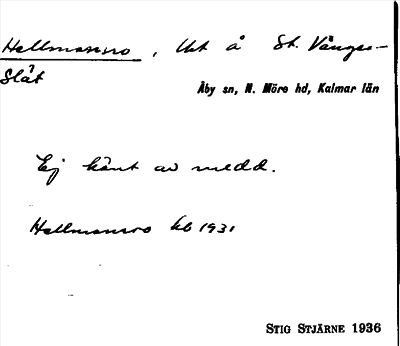 Hellmansro, Utt å St. Vänges-
Slåt
Åby sn, N. Möre hd, Kalmar län
Ej känt av medd.
Hellmansro kb 1931
STIG STJÄRNE 1936